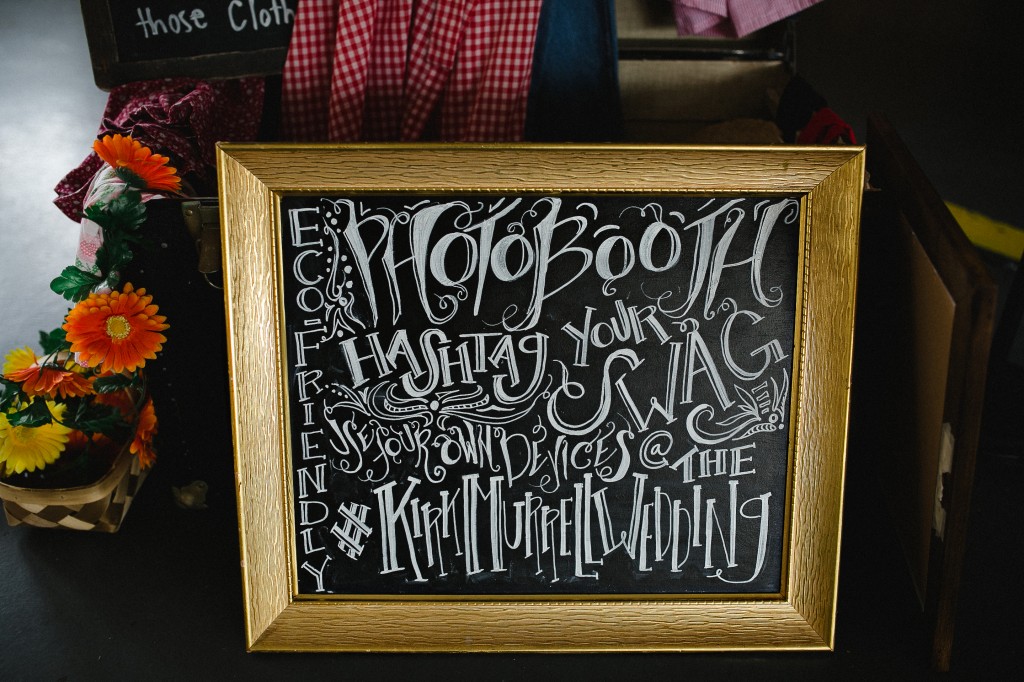 those Cloth
ECO-FRIENDLY
PHOTOBOOTH
HASHTAG YOUR
SWAG
USE YOUR OWN DEVICES @ THE
#KIRKMURRELLWEDDING